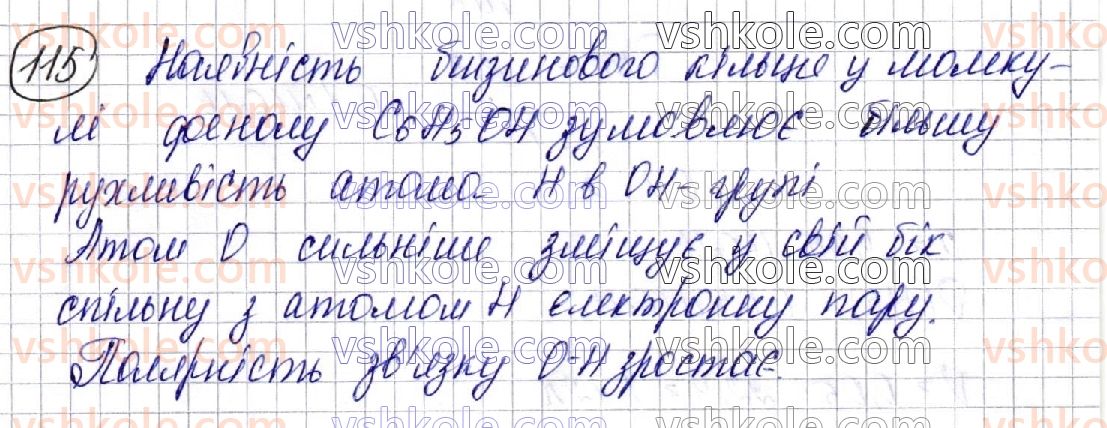 115 Наявність бензинового кільце у молеку-
лі фенолу C6H5OH зумовлює більшу
рухливість атома H в OH-групі
Атом O сильніше зміщує у свій бік
спільну з атомом H електронну пару.
Полярність зв'язку O-H зростає.